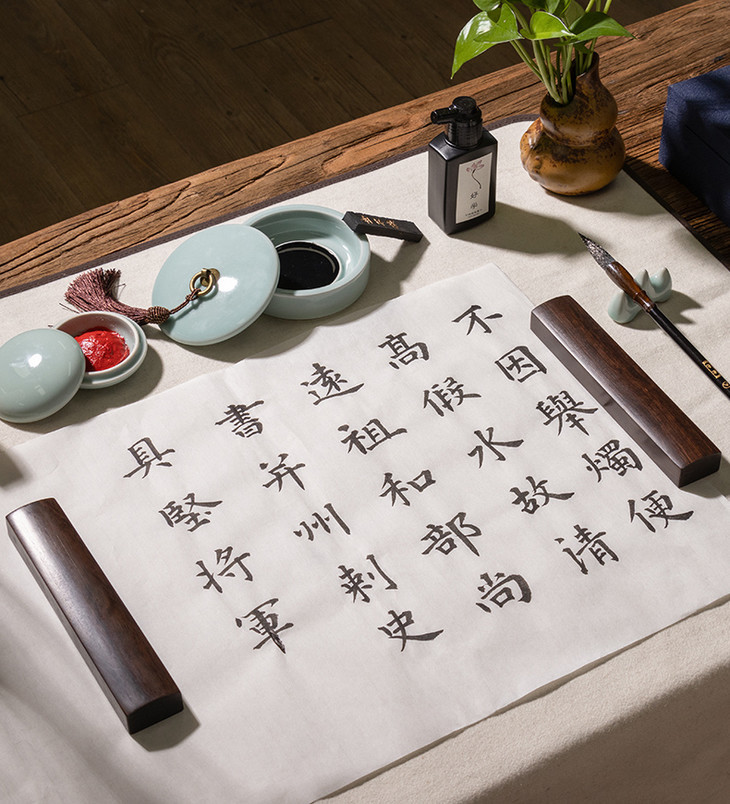 不因舉燭便
高假水故清
遠祖和部尚
書并州刺史
具堅將軍